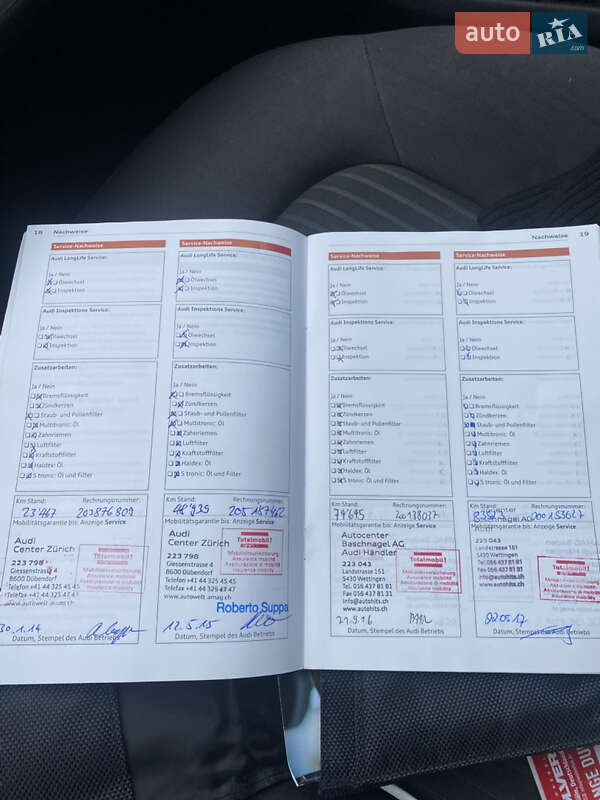 auto RIA
.com
18 Nachweise
Service-Nachweise
Audi LongLife Service:
Ja / Nein
Ölwechsel
Inspektion
Audi Inspektions Service:
Ja / Nein
Ölwechsel
Inspektion
Zusatzarbeiten:
Ja / Nein
Bremsflüssigkeit
Zündkerzen
Staub- und Pollenfilter
Multitronic: Öl
Zahnriemen
Luftfilter
Kraftstofffilter
Haldex: Öl
S tronic: Öl und Filter
Km Stand: Rechnungsnummer:
23'467 202876809
Mobilitätsgarantie bis: Anzeige Service
Audi
Center Zürich
223 798
Giessenstrasse 4
8600 Dübendorf
Telefon +41 44 325 45 45
Telefax +41 44 325 47 47
www.autowelt.amag.ch
Totalmobil!
Mobilitätsversicherung
Assurance mobilité
Assicurazione di mobilità
Insurance mobility
30.1.14
Datum, Stempel des Audi Betriebs
Service-Nachweise
Audi LongLife Service:
Ja / Nein
Ölwechsel
Inspektion
Audi Inspektions Service:
Ja / Nein
Ölwechsel
Inspektion
Zusatzarbeiten:
Ja / Nein
Bremsflüssigkeit
Zündkerzen
Staub- und Pollenfilter
Multitronic: Öl
Zahnriemen
Luftfilter
Kraftstofffilter
Haldex: Öl
S tronic: Öl und Filter
Km Stand: Rechnungsnummer:
46'935 205157452
Mobilitätsgarantie bis: Anzeige Service
Audi
Center Zürich
223 798
Giessenstrasse 4
8600 Dübendorf
Telefon +41 44 325 45 45
Telefax +41 44 325 47 47
www.autowelt.amag.ch
Totalmobil!
Mobilitätsversicherung
Assurance mobilité
Assicurazione di mobilità
Insurance mobility
Roberto Suppa
12.5.15
Datum, Stempel des Audi Betriebs
Nachweise 19
Service-Nachweise
Audi LongLife Service:
Ja / Nein
Ölwechsel
Inspektion
Audi Inspektions Service:
Ja / Nein
Ölwechsel
Inspektion
Zusatzarbeiten:
Ja / Nein
Bremsflüssigkeit
Zündkerzen
Staub- und Pollenfilter
Multitronic: Öl
Zahnriemen
Luftfilter
Kraftstofffilter
Haldex: Öl
S tronic: Öl und Filter
Km Stand: Rechnungsnummer:
79'695 20138037
Mobilitätsgarantie bis: Anzeige Service
Autocenter
Baschnagel AG
Audi Händler
223 043
Landstrasse 151
5430 Wettingen
Fon 056 437 81 81
Fax 056 437 81 31
info@autohits.ch
www.autohits.ch
Totalmobil!
Mobilitätsversicherung
Assurance mobilité
Assicurazione di mobilità
Insurance mobility
21.9.16
Datum, Stempel des Audi Betriebs
Service-Nachweise
Audi LongLife Service:
Ja / Nein
Ölwechsel
Inspektion
Audi Inspektions Service:
Ja / Nein
Ölwechsel
Inspektion
Zusatzarbeiten:
Ja / Nein
Bremsflüssigkeit
Zündkerzen
Staub- und Pollenfilter
Multitronic: Öl
Zahnriemen
Luftfilter
Kraftstofffilter
Haldex: Öl
S tronic: Öl und Filter
Baschnagel AG
Mobilitätsgarantie bis: Anzeige Service
223 043
Landstrasse 151
5430 Wettingen
Fon 056 437 81 81
Fax 056 437 81 31
info@autohits.ch
www.autohits.ch
Totalmobil!
Datum, Stempel des Audi Betriebs